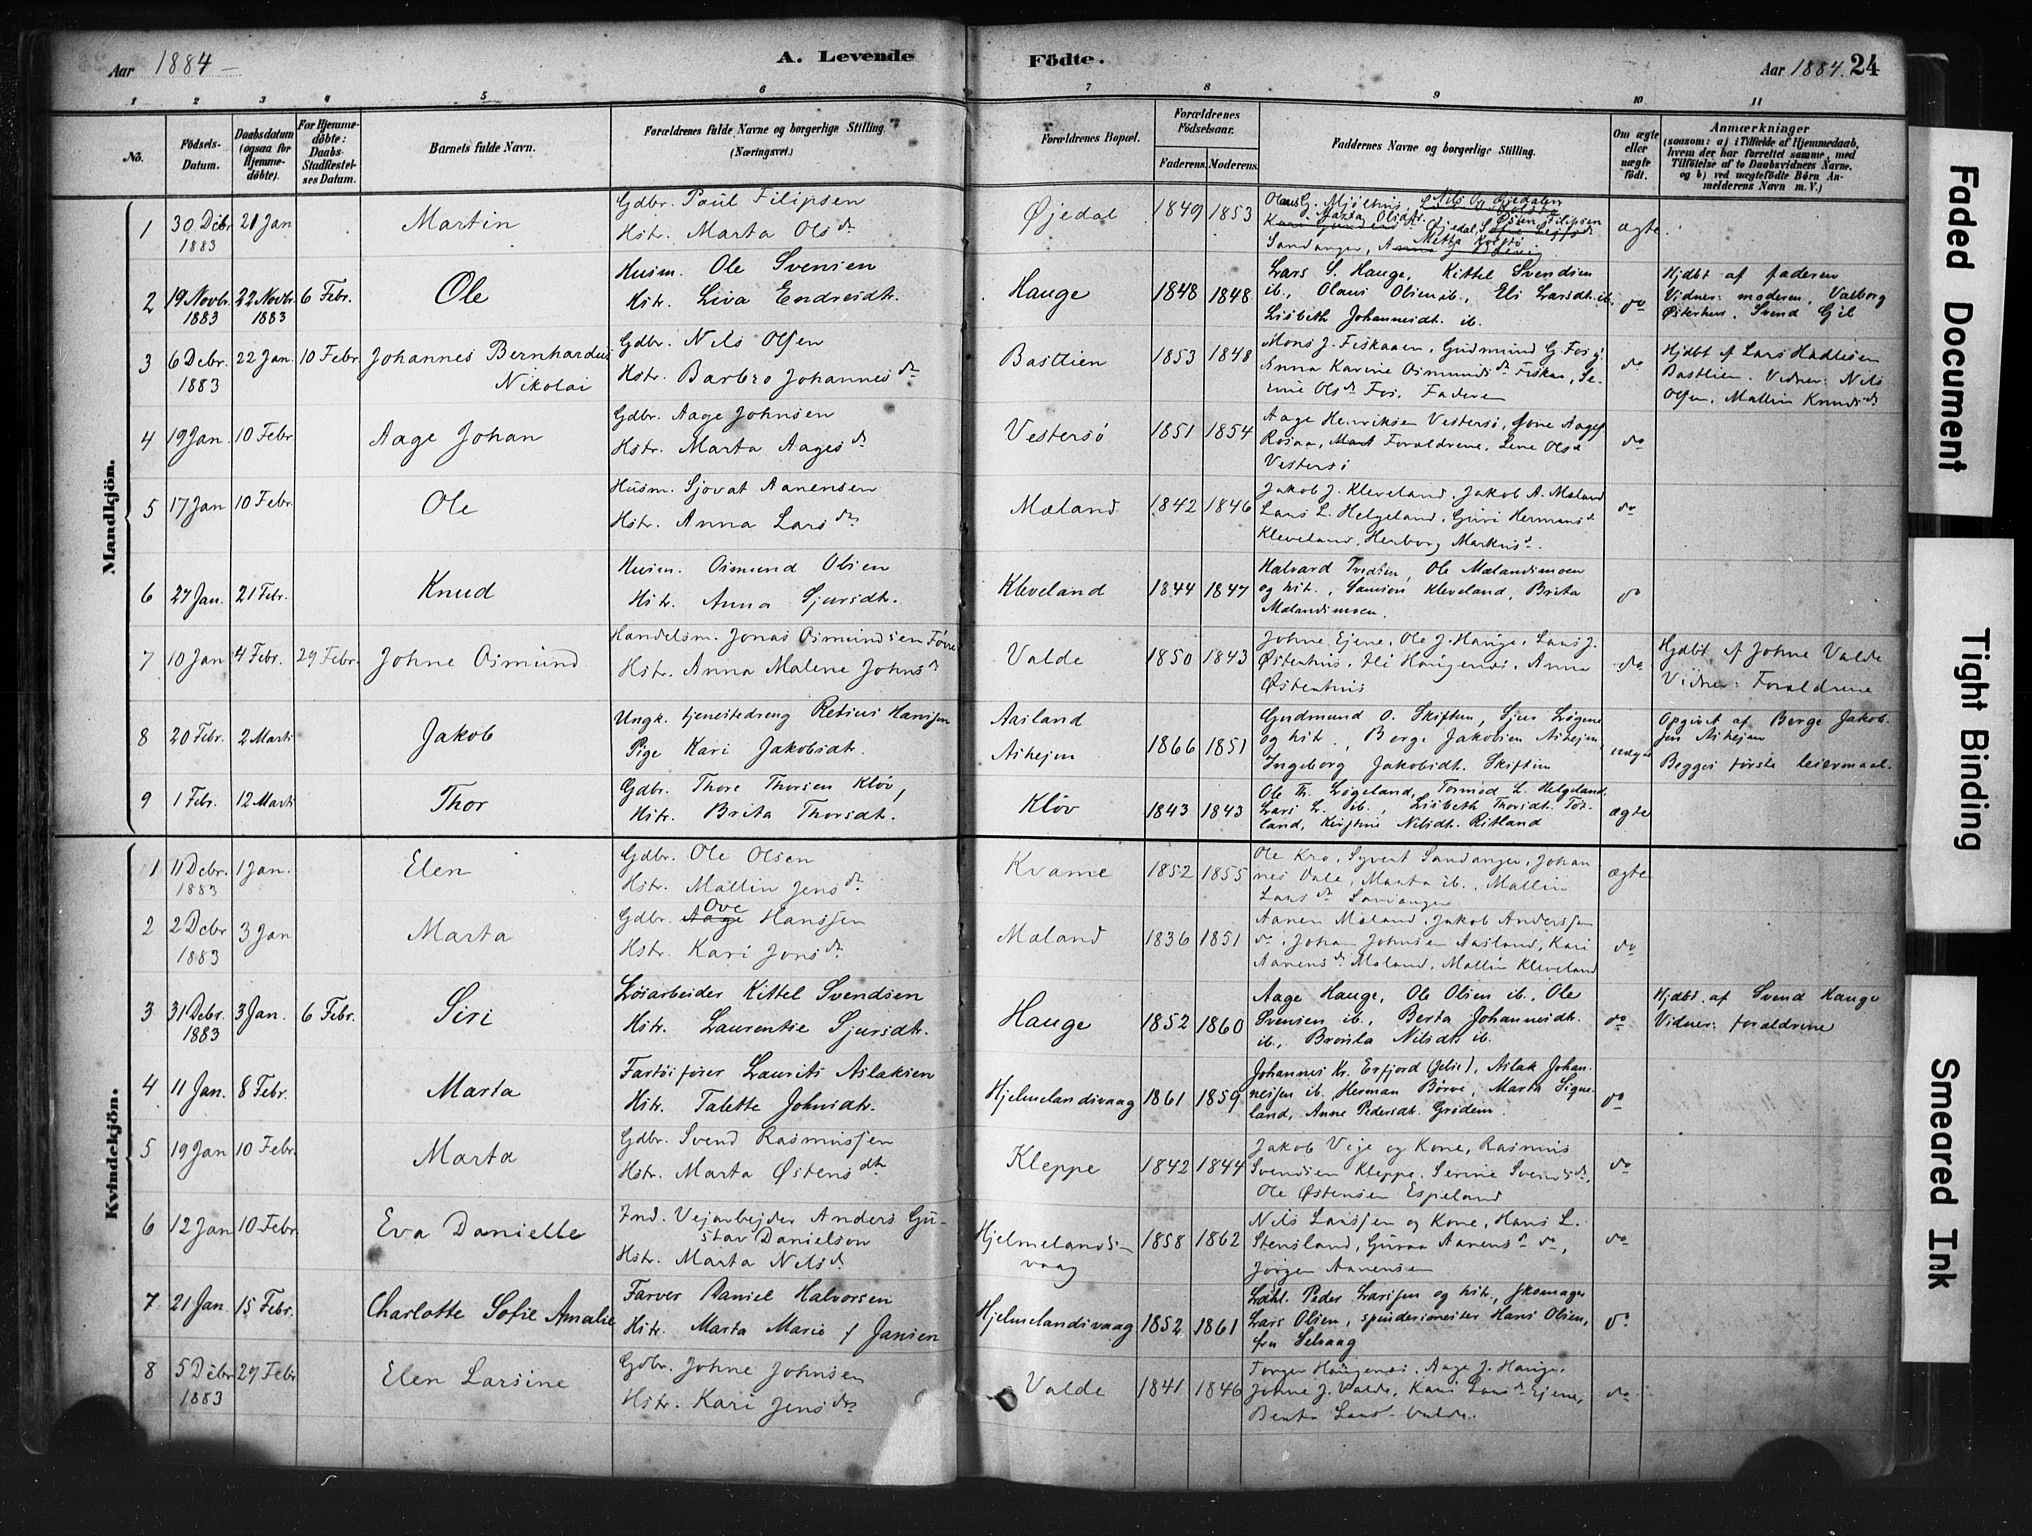 Aar 1884 –
A. Levende
Födte.
Aar 1884. 24
1 2 3 4 5 6 7 8 9 10 11
No.
Födsels-Datum.
Daabsdatum (ogsaa for Hjemme-döbte).
For Hjemme-döbte: Daabs-Stadfæstel-ses Datum.
Barnets fulde Navn.
Forældrenes fulde Navne og borgerlige Stilling. (Næringsvei.)
Forældrenes Bopæl.
Forældrenes Födselsaar.
Faderens. Moderens.
Faddernes Navne og borgerlige Stilling.
Om ægte eller uægte födt.
Anmærkninger
(saasom: a) i Tilfælde af Hjemmedaab, hvem der har forrettet samme, med Tilföielse af to Daabsvidners Navne. og b) ved uægtefödte Börn An-melderens Navn m. V.)
Mandkjön.
1 30 Debr 1883 21 Jan Martin
Gdbr. Paul Filipsen
Hstr. Marta Olsdr
Øjedal 1849 1853
Olaus G. Mjölhus,
Sandanger,
ægte.
2 19 Novbr. 1883 22 Novbr. 1883 6 Febr. Ole
Husm. Ole Svensen
Hstr. Liva Endresdtr.
Hauge 1848 1848
Lars S. Hauge, Kittel Svendsen
ib., Olaus Olsen ib., Eli Larsdtr. ib.
Lisbeth Johannesdt. ib.
do
Hjdbt af faderen
Vidner: moderen, Valborg
Østerhus. Svend Gil
3 6 Debr. 1883 22 Jan. 10 Febr Johannes Bernhardus
Nikolai
Gdbr. Nils Olsen
Hstr. Barbro Johannesdr
Bastlien 1853 1848
Mons J. Fiskaaen, Gudmund G. Fos
Anna Karine Osmundsdr Fiskaa, Se-
rine Olsdr Fos. Faderen
do
Hjdbt af Lars Hadlesen
Bastlien. Vidner: Nils
Olsen, Mallin Knudsdr
4 19 Jan. 10 Febr. Aage Johan
Gdbr. Aage Johnsen
Hstr. Marta Aagesd
Vestersø 1851 1854
Aage Henriksen Vestersø,
Forældrene, Lene Olsd
Vestersø
do
5 17 Jan 10 Febr. Ole
Husm. Sjovat Aanensen
Hstr. Anna Larsdr
Mæland 1842 1846
Jakob J. Kleveland, Jakob A. Mæland
Lars L. Helgeland, Guri Hermansd
Kleveland, Herborg Markusd.
do
6 27 Jan. 21 Febr. Knud
Husm. Osmund Olsen
Hstr. Anna Sjursdtr.
Kleveland 1844 1847
Halvard Tvedten, Ole Mælandsmoen
og hst., Samson Kleveland, Brita
Mælandsmoen.
do
7 10 Jan 4 Febr. 29 Febr. Johne Osmund
Handelsm. Jonas Osmundsen Føvre
Hstr. Anna Malene Johnsd
Valde 1850 1843
Johne Ejene, Ole J. Hauge, Lars J.
Østenhus, Anna
Østenhus
do
Hjdbt af Johne Valde
Vidner: Forældrene
8 20 Febr. 2 Marts Jakob
Ungk. tjenestedreng Retius Hanssen
Pige Kari Jakobsdt.
Aasland
Askejen 1866 1851
Gudmund O. Skiftun, Sjur Løgene
og hst., Berge Jakobsen Askejen,
Ingeborg Jakobsdt. Skiftun
uægte
Opgivet af Berge Jakob-
sen Askejen
Begges første leiermaal.
9 1 Febr. 12 Marts Thor
Gdbr. Thore Thorsen Kløv,
Hstr. Brita Thorsdt.
Kløv 1843 1843
Ole Th. Løgeland, Tormod L. Helgeland
Lars L. ib., Lisbeth Thorsdt. Tøs-
land, Kirstine Nilsdt. Ritland
ægte
Kvindekjön.
1 11 Debr. 1883 1 Jan. Elen
Gdbr. Ole Olsen
Hstr. Mallin Jensdr.
Kvame 1852 1855
Ole Kro, Syvert Sandanger, Johan-
nes Vale, Marta ib., Mallin
Larsdr Sandanger
ægte
2 2 Debr 1883 3 Jan Marta
Gdbr. Aage Ove Hanssen
Hstr. Kari Jonsdr
Mæland 1836 1851
Aanen Mæland, Jakob Anderssen
do, Johan Johnsen Aasland, Kari
Aanensdr Mæland, Mallin Kleveland
do
3 31 Debr. 1883 3 Jan. 6 Febr. Siri
Løsarbeider Kittel Svendsen
Hstr. Laurentse Sjursdt.
Hauge 1852 1860
Aage Hauge, Ole Olsen ib., Ole
Svensen ib., Berta Johannesdt.
ib., Bronla Nilsdt. ib.
do
Hjdbt. af Svend Hauge
Vidner: forældrene
4 11 Jan. 8 Febr. Marta
Fartøifører Laurits Aslaksen
Hstr. Talette Johnsdtr.
Hjelmelandsvaag 1861 1859
Johannes Kr. Erfjord (Jelse), Aslak Johan-
nessen ib., Herman Børve, Marta Signe-
land, Anne Pedersdt. Grødem.
do
5 19 Jan 10 Febr. Marta
Gdbr. Svend Rasmussen
Hstr. Marta Østensdtr
Kleppe 1842 1844
Jakob Vije og Kone, Rasmus
Svendsen Kleppe, Serine Svendsd,
Ole Østensen Espeland
do
6 12 Jan 10 Febr Eva Danielle
Ind. Vejarbejder Anders Gu-
stav Danielson
Hstr. Marta Nilsd.
Hjelmelands-
vaag 1858 1862
Nils Larssen og Kone, Hans L.
Stensland, Guraa Aanensd do,
Jørgen Aanensen
do
7 21 Jan. 15 Febr. Charlotte Sofie Amalie
Farver Daniel Halvorsen
Hstr. Marta Marie f Jansen
Hjelmelandsvaag 1852 1861
Ldhl. Peder Larssen og hst., skomager
Lars Olsen, spinderimester Hans Olsen,
fru Selvaag
do
8 5 Debr 1883 29 Febr Elen Larsine
Gdbr. Johne Johnsen
Hstr. Kari Jensdr
Valde 1841 1846
Torger Haugenæs, Aage J. Hauge,
Johne J. Valde, Kari Larsdr Ejene,
Berta Larsd Valde.
do
Faded Document
Tight Binding
Smeared Ink